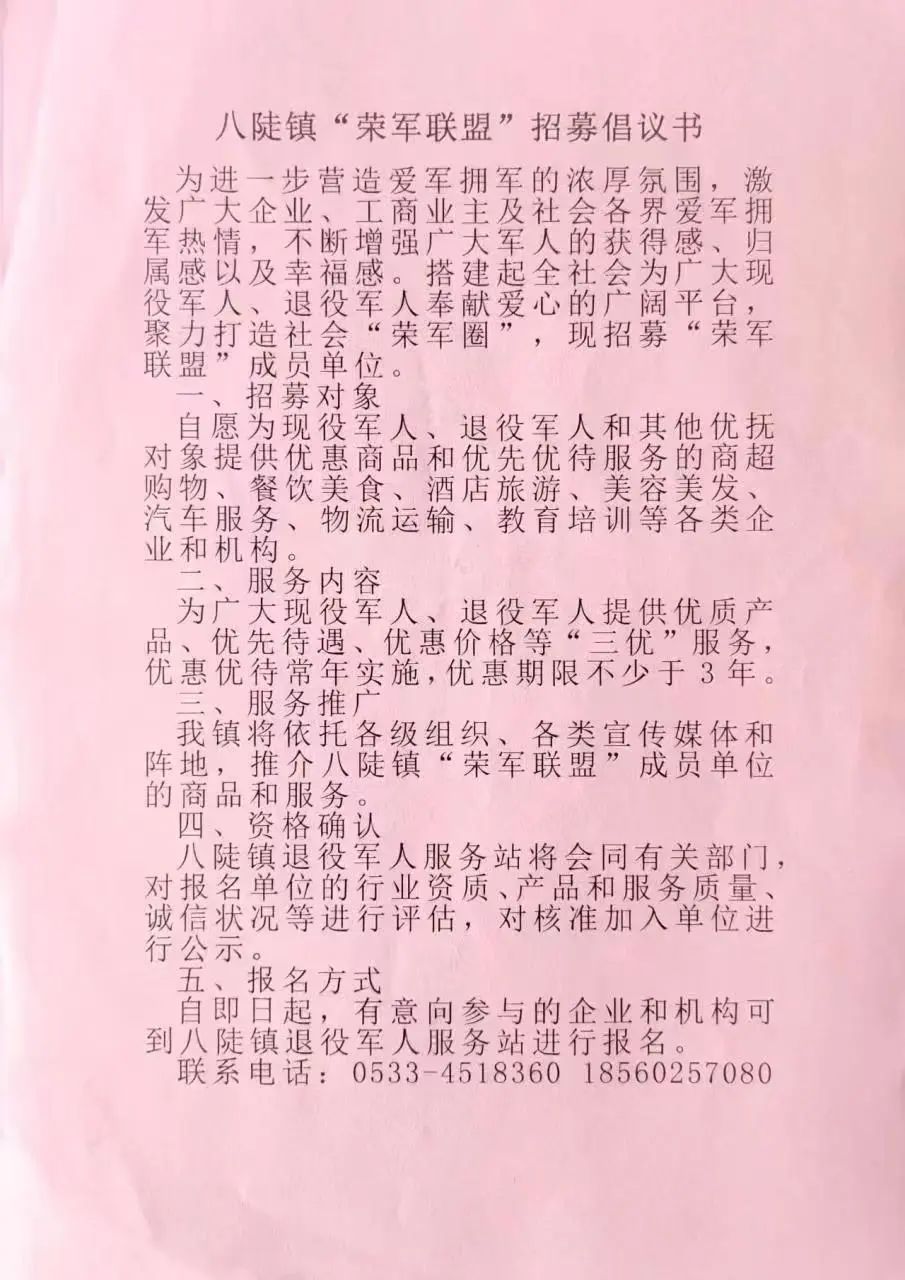 八陡镇“荣军联盟”招募倡议书
为进一步营造爱军拥军的浓厚氛围，激
发广大企业、工商业主及社会各界爱军拥
军热情，不断增强广大军人的获得感、归
属感以及幸福感。搭建起全社会为广大现
役军人、退役军人奉献爱心的广阔平台，
聚力打造社会“荣军圈”，现招募“荣军
联盟”成员单位。
一、招募对象
自愿为现役军人、退役军人和其他优抚
对象提供优惠商品和优先优待服务的商超
购物、餐饮美食、酒店旅游、美容美发、
汽车服务、物流运输、教育培训等各类企
业和机构。
二、服务内容
为广大现役军人、退役军人提供优质产
品、优先待遇、优惠价格等“三优”服务，
优惠优待常年实施，优惠期限不少于3年。
三、服务推广
我镇将依托各级组织、各类宣传媒体和
阵地，推介八陡镇“荣军联盟”成员单位
的商品和服务。
四、资格确认
八陡镇退役军人服务站将会同有关部门，
对报名单位的行业资质、产品和服务质量、
诚信状况等进行评估，对核准加入单位进
行公示。
五、报名方式
自即日起，有意向参与的企业和机构可
到八陡镇退役军人服务站进行报名。
联系电话：0533-4518360 18560257080